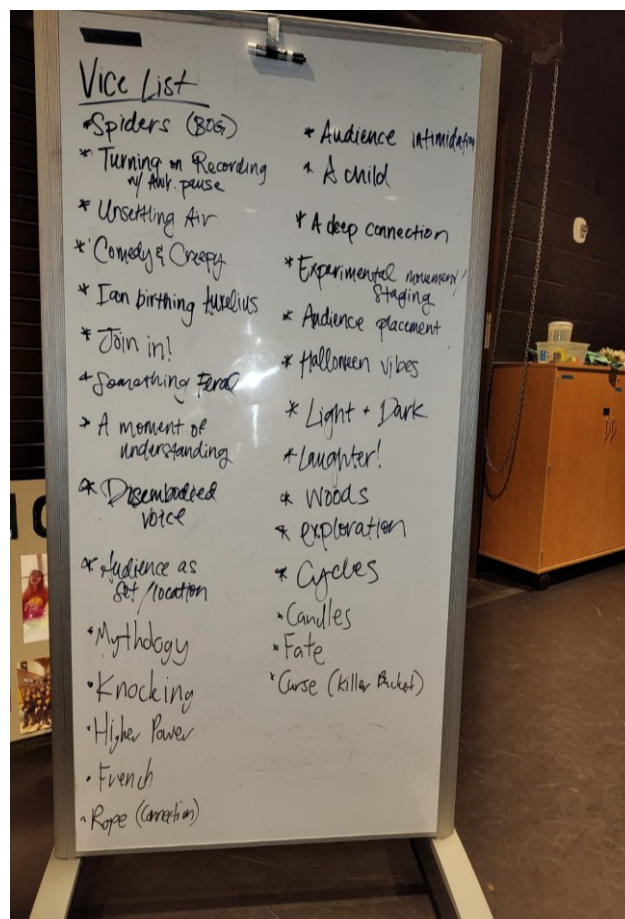 Vice List
*Spiders (BOG)
* Turning on Recording
w/ Awk. pause
* Unsettling Air
* Comedy & Creepy
* Ian birthing Aurelius
* Join in!
* Something Feral
* A moment of
understanding
* Disembodied
voice
* Audience as
Set/location
*Mythology
*Knocking
*Higher Power
*French
*Rope (Connection)
* Audience intimidation
* A child
* A deep connection
* Experimental movement/
Staging
* Audience placement
* Halloween vibes
* Light + Dark
* Laughter!
* Woods
* exploration
* Cycles
*Candles
*Fate
*Curse (Killer Bucket)